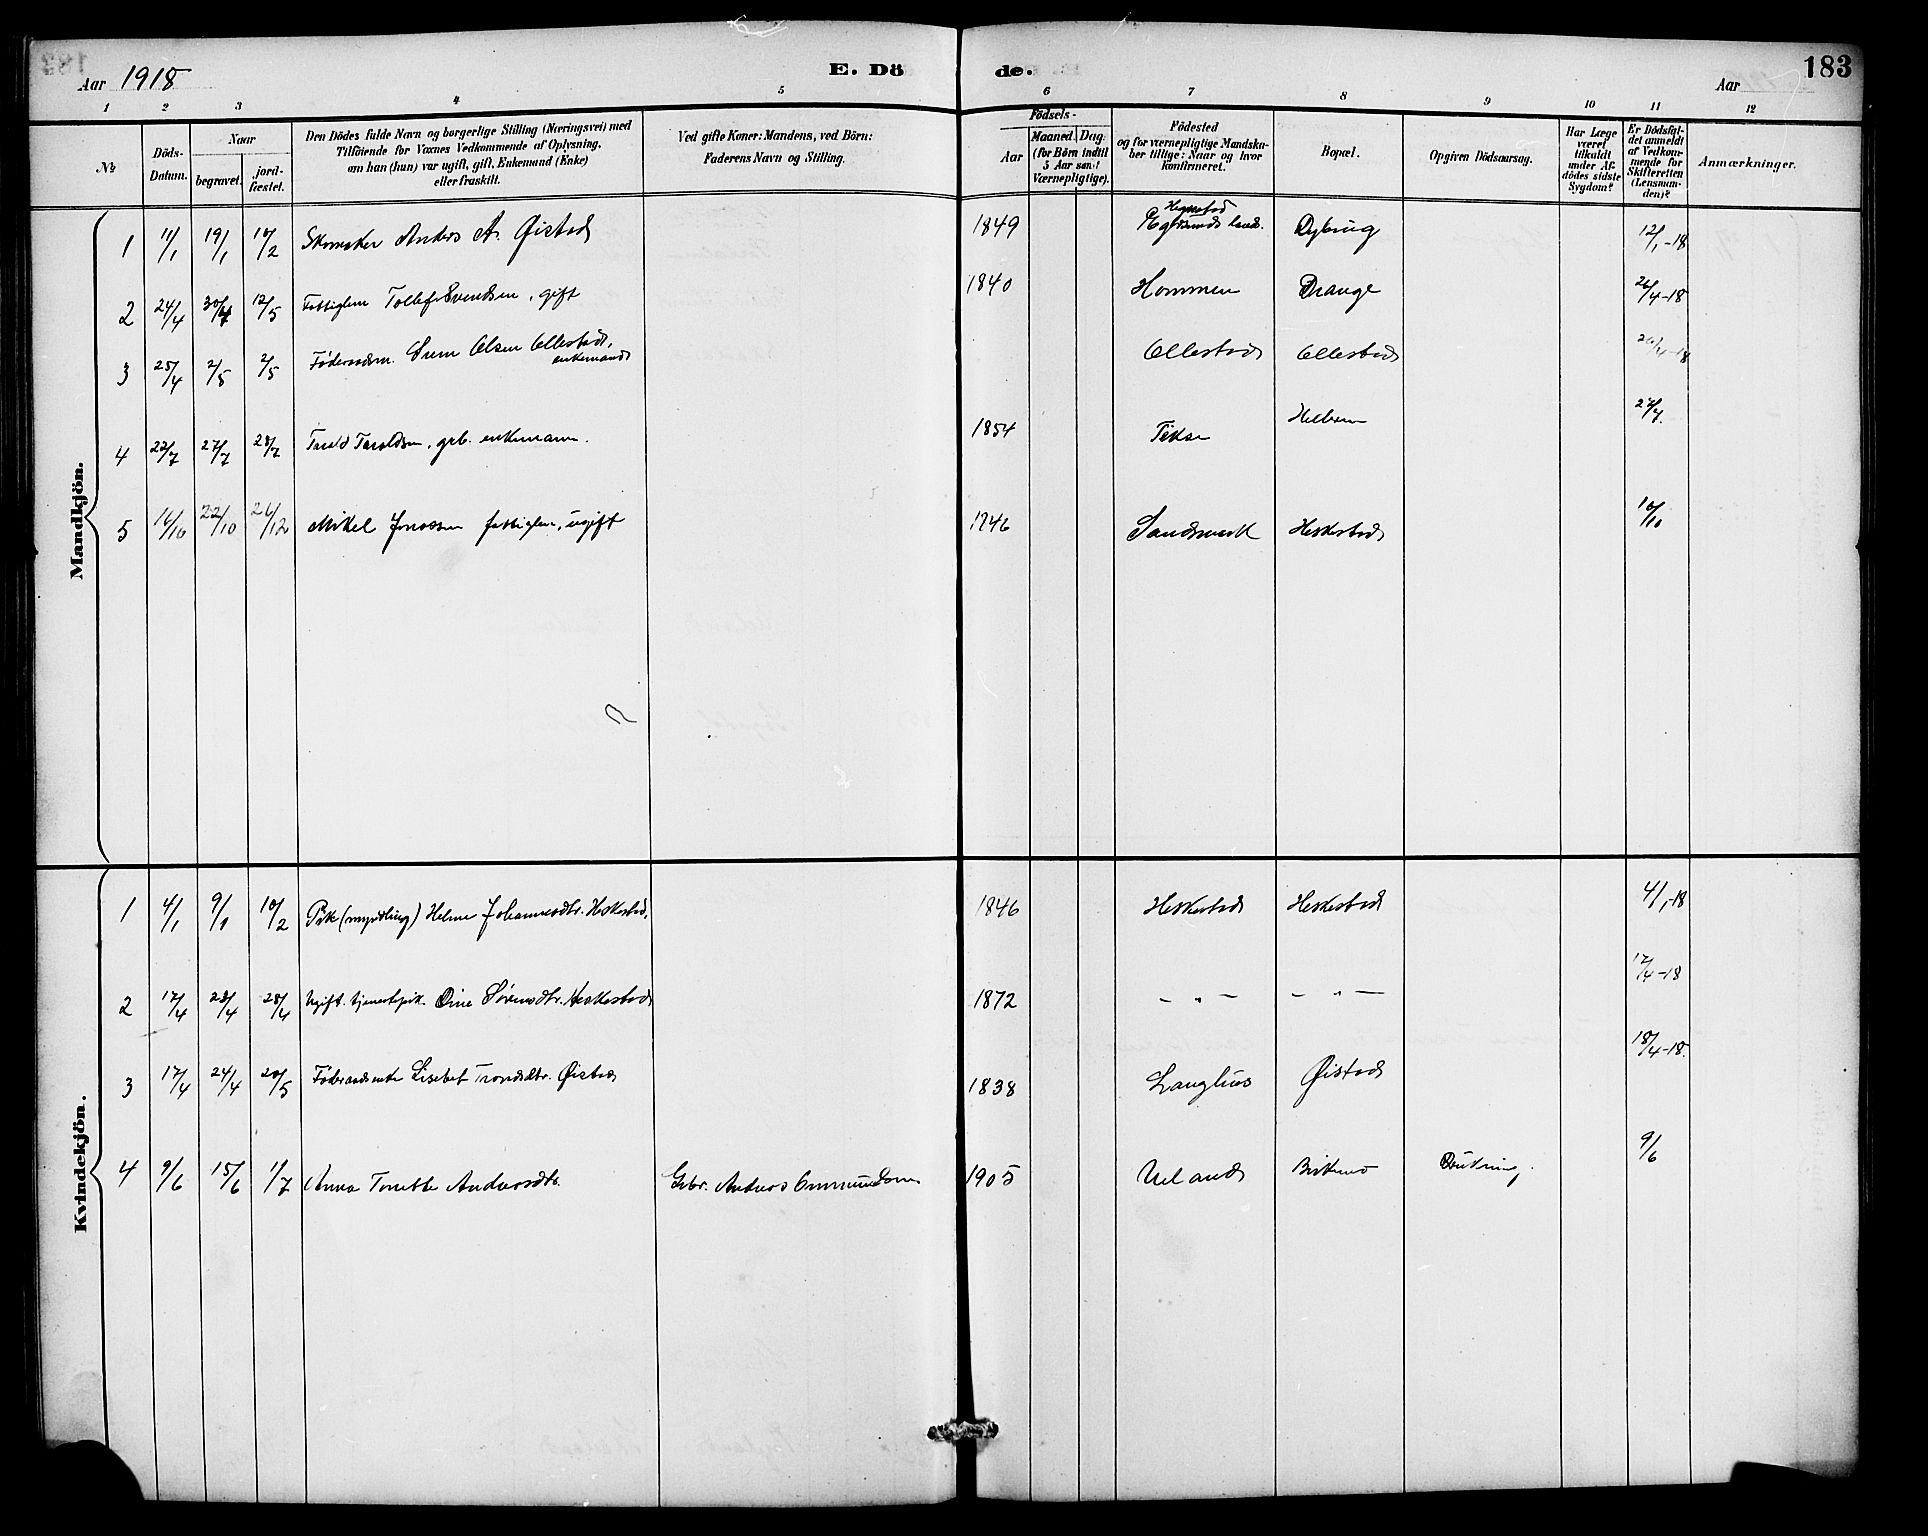 Aar 1918
E. Döde.
Aar
183
1 2 3 4 5 6 7 8 9 10 11 12
No
Döds-Datum.
Naar
begravet.
jord-fæstet.
Den Dödes fulde Navn og borgerlige Stilling (Næringsvei) med
Tilföiende for Voxnes Vedkommende af Oplysning,
om han (hun) var ugift, gift, Enkemand (Enke)
eller fraskilt.
Ved gifte Koner: Mandens, ved Börn:
Faderens Navn og Stilling.
Födsels-
Aar
Maaned. Dag.
(for Börn indtil
5 Aar samt
Værnepligtige).
Födested
og for værnepligtige Mandska-
ber tillige: Naar og hvor
konfirmeret.
Bopæl.
Opgiven Dödsaarsag.
Har Læge
været
tilkaldt
under Af-
dödes sidste
Sygdom?
Er Dödsfal-
det anmeldt
af Vedkom-
mende for
Skifteretten
(Lensman-
den)?
Anmærkninger.
Mandkjön.
1 11/1 19/1 10/2 Skomaker Anders A. Øistad 1849 Egersunds lands. Dybing 12/1-18
2 24/4 30/4 12/5 Fattiglem Tollef Svendsen, gift 1840 Hommen Drange 26/4-18
3 25/4 2/5 2/5 Føderaadsm. Olsen Ollestad, enkemand Ollestad Ollestad 26/4-18
4 22/7 27/7 28/7 Tarald Taraldsen, grb. enkemann. 1854 Tekse 27/7.
5 16/10 22/10 26/12 Mikel Jonassen fattiglem, ugift 1846 Sandsmark Heskestad 10/10
Kvindekjön.
1 4/1 9/1 10/2 Pike (myndling) Helene Johannesdtr. Heskestad, 1846 Heskestad Heskestad 4/1-18
2 17/4 23/4 28/4 Ugift tjenestepik. Sørensdtr. Heskestad 1872 - " - - " - 17/4-18
3 17/4 24/4 20/5 Føderaadsenke Lisebet Trondsdtr. Øistad 1838 Langhus Øistad 18/4-18.
4 9/6 15/6 1/7 Anna Tonette Andersdtr. Gbr. Anders Ommundsen 1905 Ueland Birkemo Drukning. 9/6